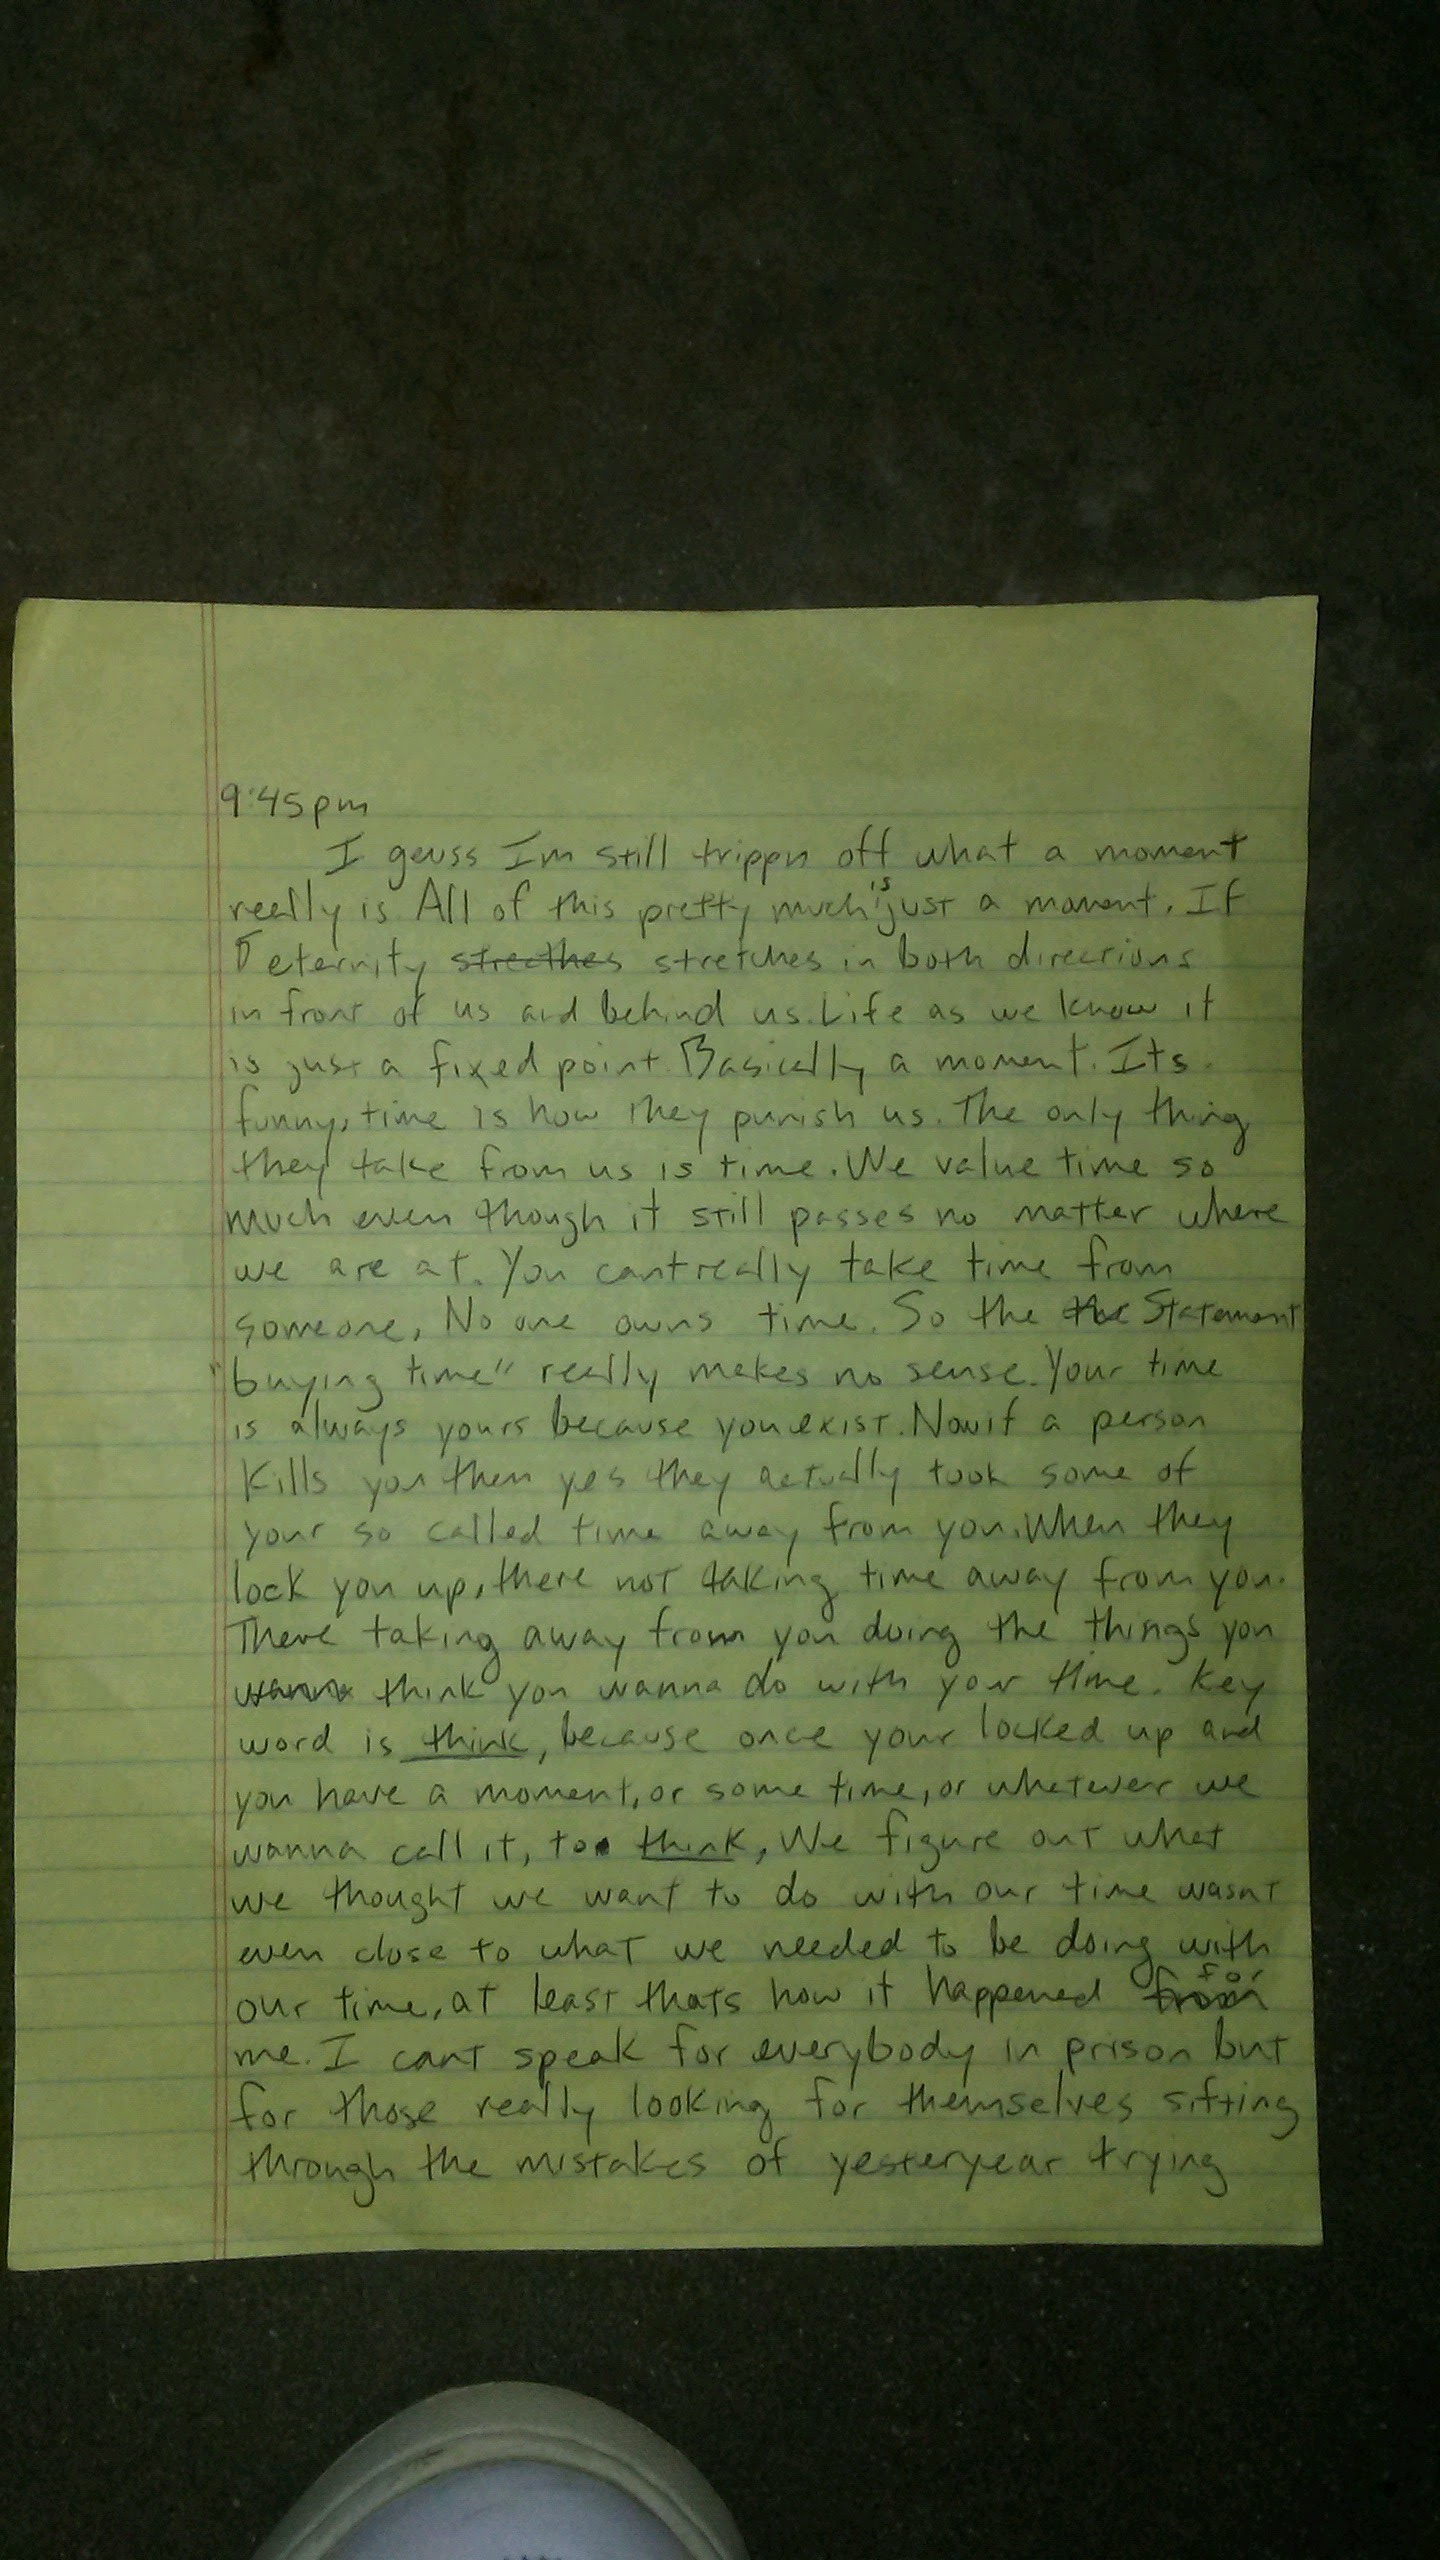 9:45pm
I geuss Im still trippn off what a moment
really is All of this pretty much is just a moment. If
eternity streethes stretches in both directions
in front of us and behind us. Life as we know it
is just a fixed point. Basically a moment. Its
funny, time is how they punish us. The only thing
they take from us is time. We value time so
much even though it still passes no matter where
we are at. You cant really take time from
someone, No one owns time. So the the Statement
"buying time" really makes no sense. Your time
is always yours because you exist. Now if a person
kills you then yes they actually took some of
your so called time away from you. When they
lock you up, there not taking time away from you.
There taking away from you doing the things you
wanna think you wanna do with your time. Key
word is think, because once your locked up and
you have a moment, or some time, or whatever we
wanna call it, to think, We figure out what
we thought we want to do with our time wasnt
even close to what we needed to be doing with
our time, at least thats how it happened from for
me. I cant speak for everybody in prison but
for those really looking for themselves sifting
through the mistakes of yesteryear trying